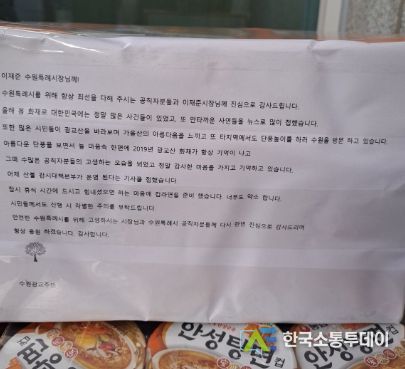 이재준 수원특례시장님께!
수원특례시를 위해 항상 최선을 다해 주시는 공직자분들과 이재준시장님께 진심으로 감사드립니다.
올해 봄 화재로 대한민국에는 정말 많은 사건들이 있었고, 또 안타까운 사연들을 뉴스로 많이 접했습니다.
또한 많은 시민들이 광교산을 바라보며 가을산의 아름다움을 느끼고 또 타지역에서도 단풍놀이를 하러 수원을 방문 하고 있습니다.
아름다운 단풍을 보면서 늘 마음속 한편에 2019년 광교산 화재가 항상 기억이 나고
그때 수많은 공직자분들의 고생하는 모습을 보았고 정말 감사한 마음을 가지고 기억하고 있습니다.
어제 산불 감시대책본부가 운영 된다는 기사를 접했습니다.
잠시 휴식 시간에 드시고 힘내셨으면 하는 마음에 컵라면을 준비 했습니다. 너무도 약소 합니다.
시민들께서도 산행 시 각별한 주의를 부탁드립니다.
안전한 수원특례시를 위해 고생하시는 시장님과 수원특례시 공직자분들께 다시 한번 진심으로 감사드리며
항상 응원 하겠습니다. 감사합니다.
수원광교주민
한국소통투데이
안성탕면 컵
안성탕면